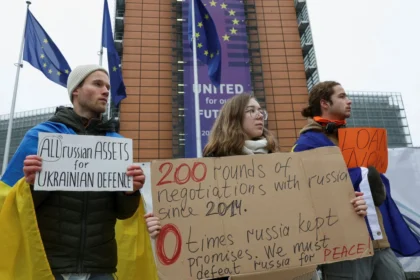 UNITED
for our
FUTURE
ALL russian ASSETS
for
UKRAINIAN DEFENCE
200 rounds of
negotiations with russia
since 2014.
0 times russia kept
promises. We must
defeat russia for PEACE!